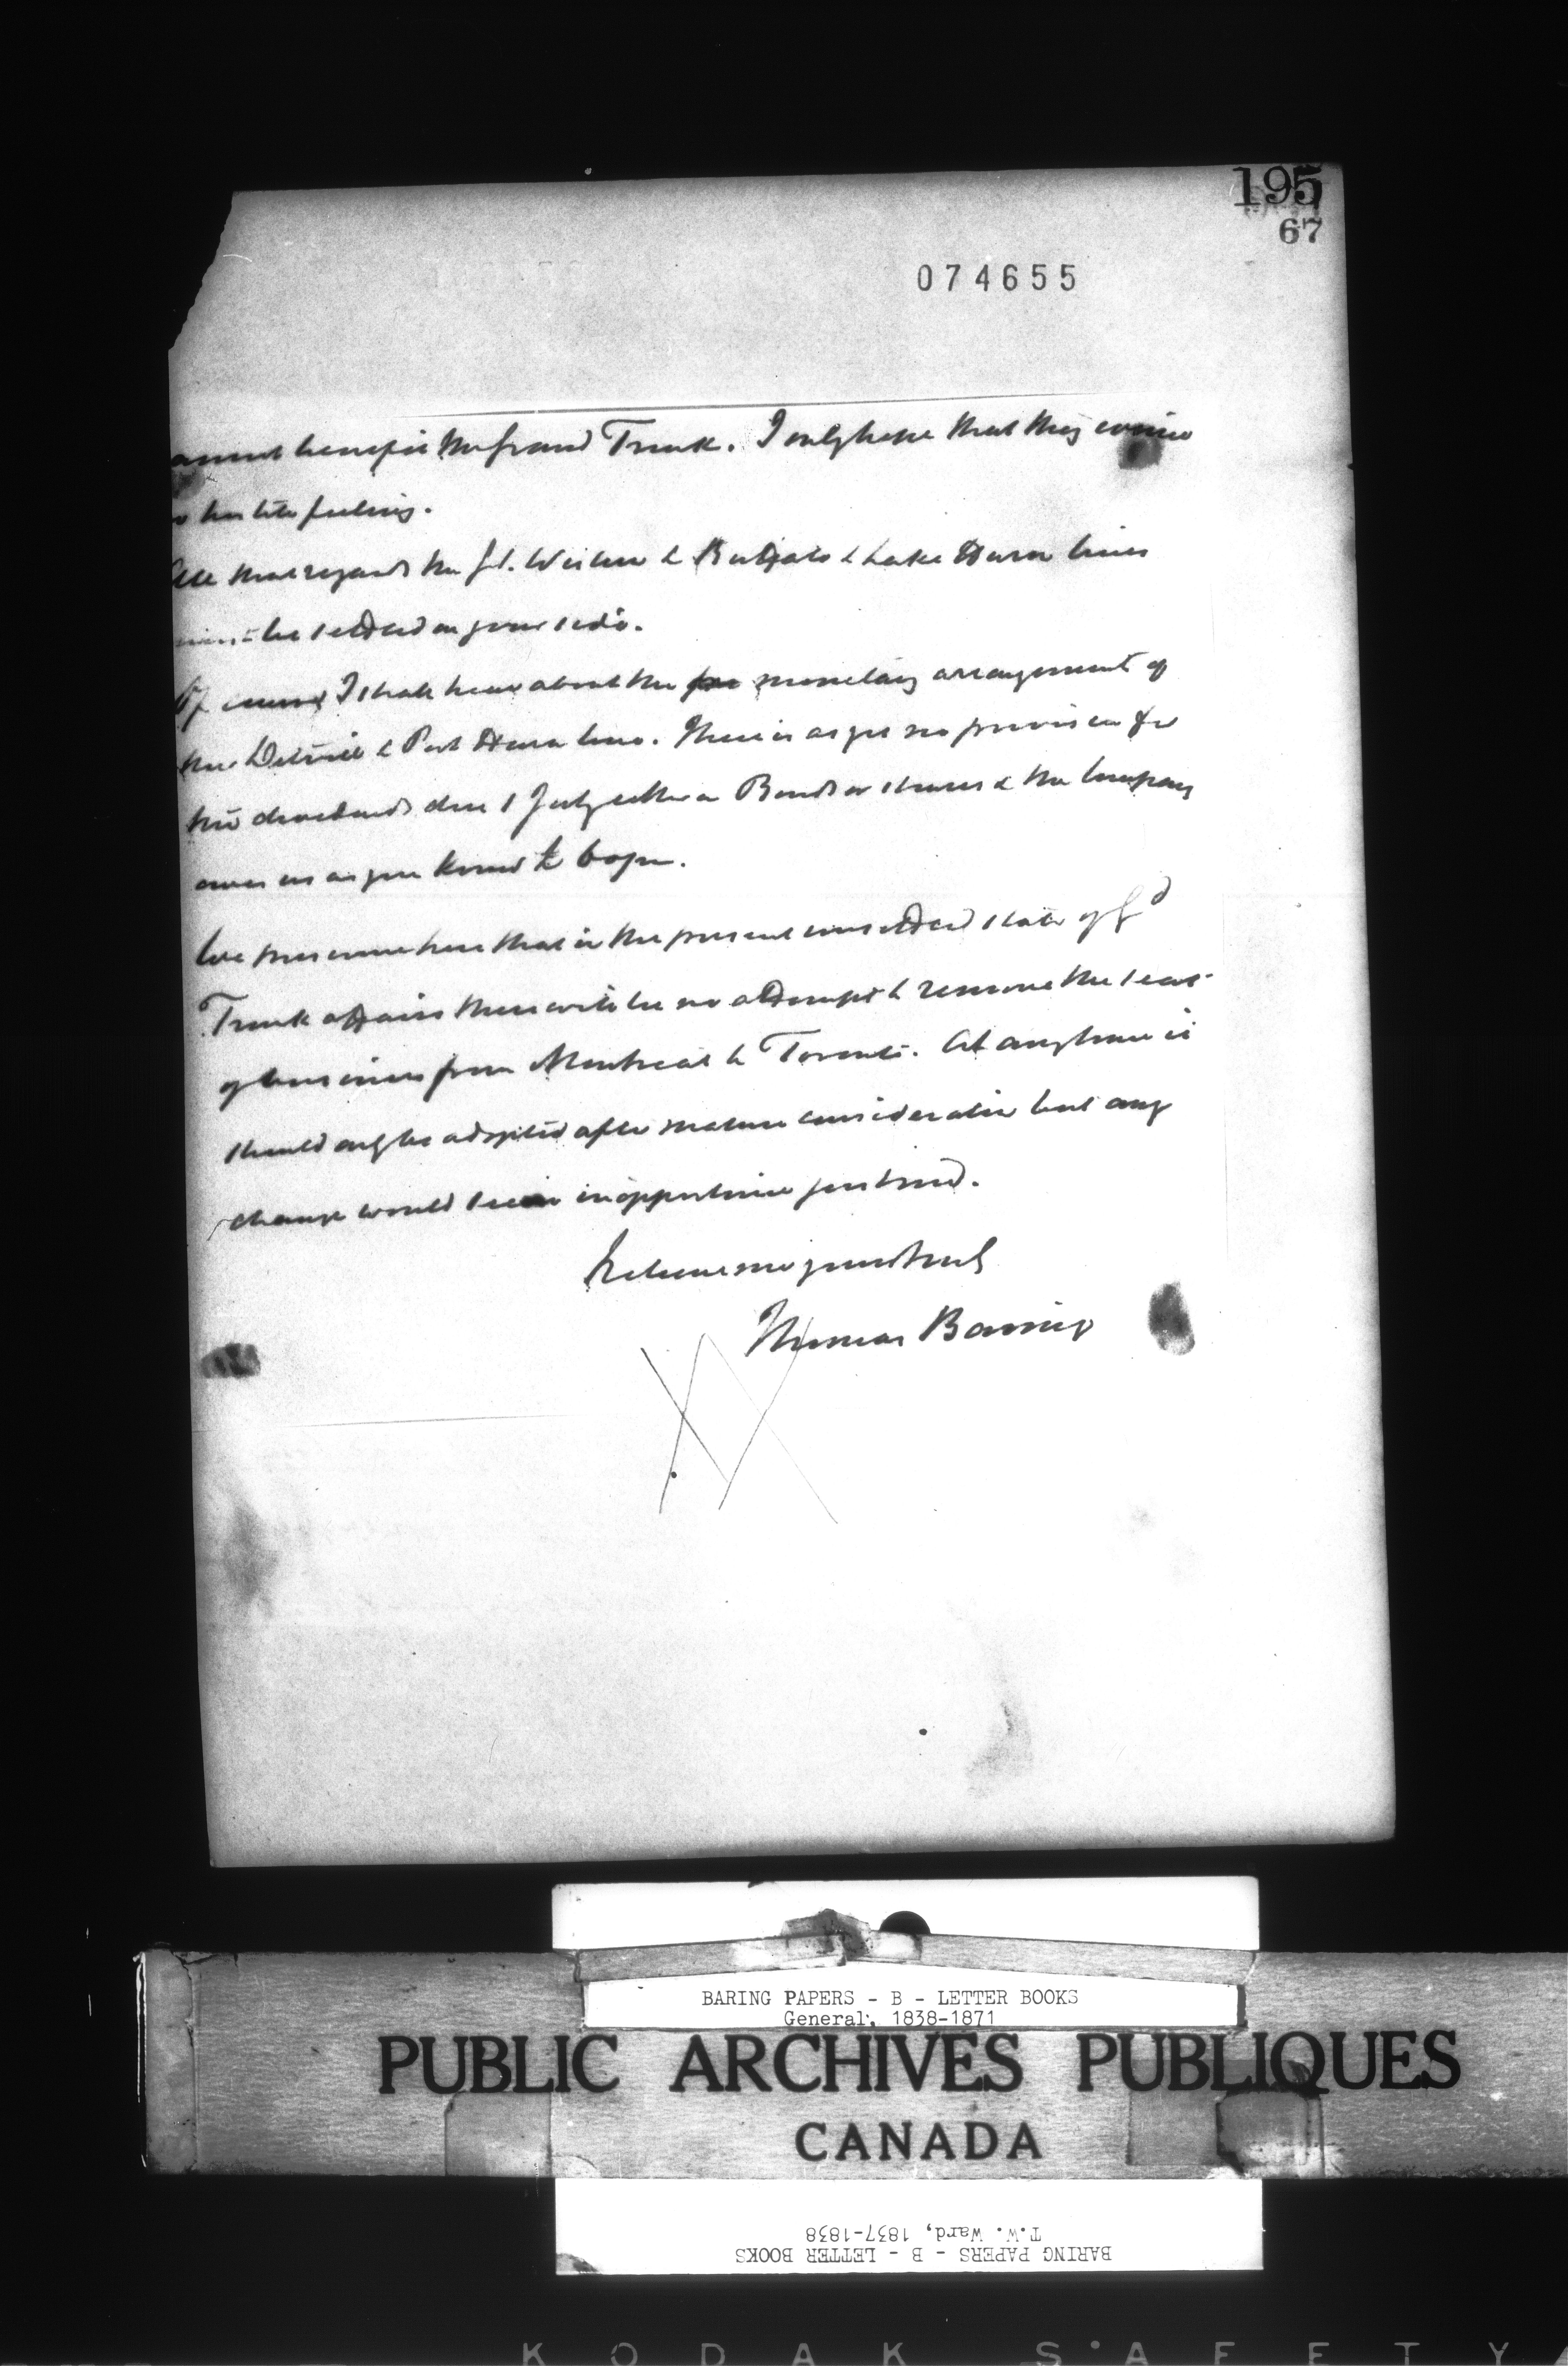 195
67
074655
cannot benefit the Grand Trunk. I only hope that they evince
no hostile feeling.
All that regards the Gt. Western & Buffalo & Lake Huron lines
must be settled on your side.
Of course I shall hear about the monetary arrangement of
the Detroit & Port Huron line. There is as yet no provision for
the dividends due 1 July either on Bonds or shares & the Company
owes us as you know
We presume here that in the present unsettled state of Gd
Trunk affairs there will be no attempt to remove the seat
of business from Montreal to Toronto. At any time it
should only be adopted after mature consideration but any
change would seem inopportune just now.
Believe me yours truly
Thomas Baring
BARING PAPERS - B - LETTER BOOKS
General, 1838-1871
PUBLIC ARCHIVES PUBLIQUES
CANADA
T.W. Ward, 1837-1838
BARING PAPERS - B - LETTER BOOKS
KODAK SAFETY